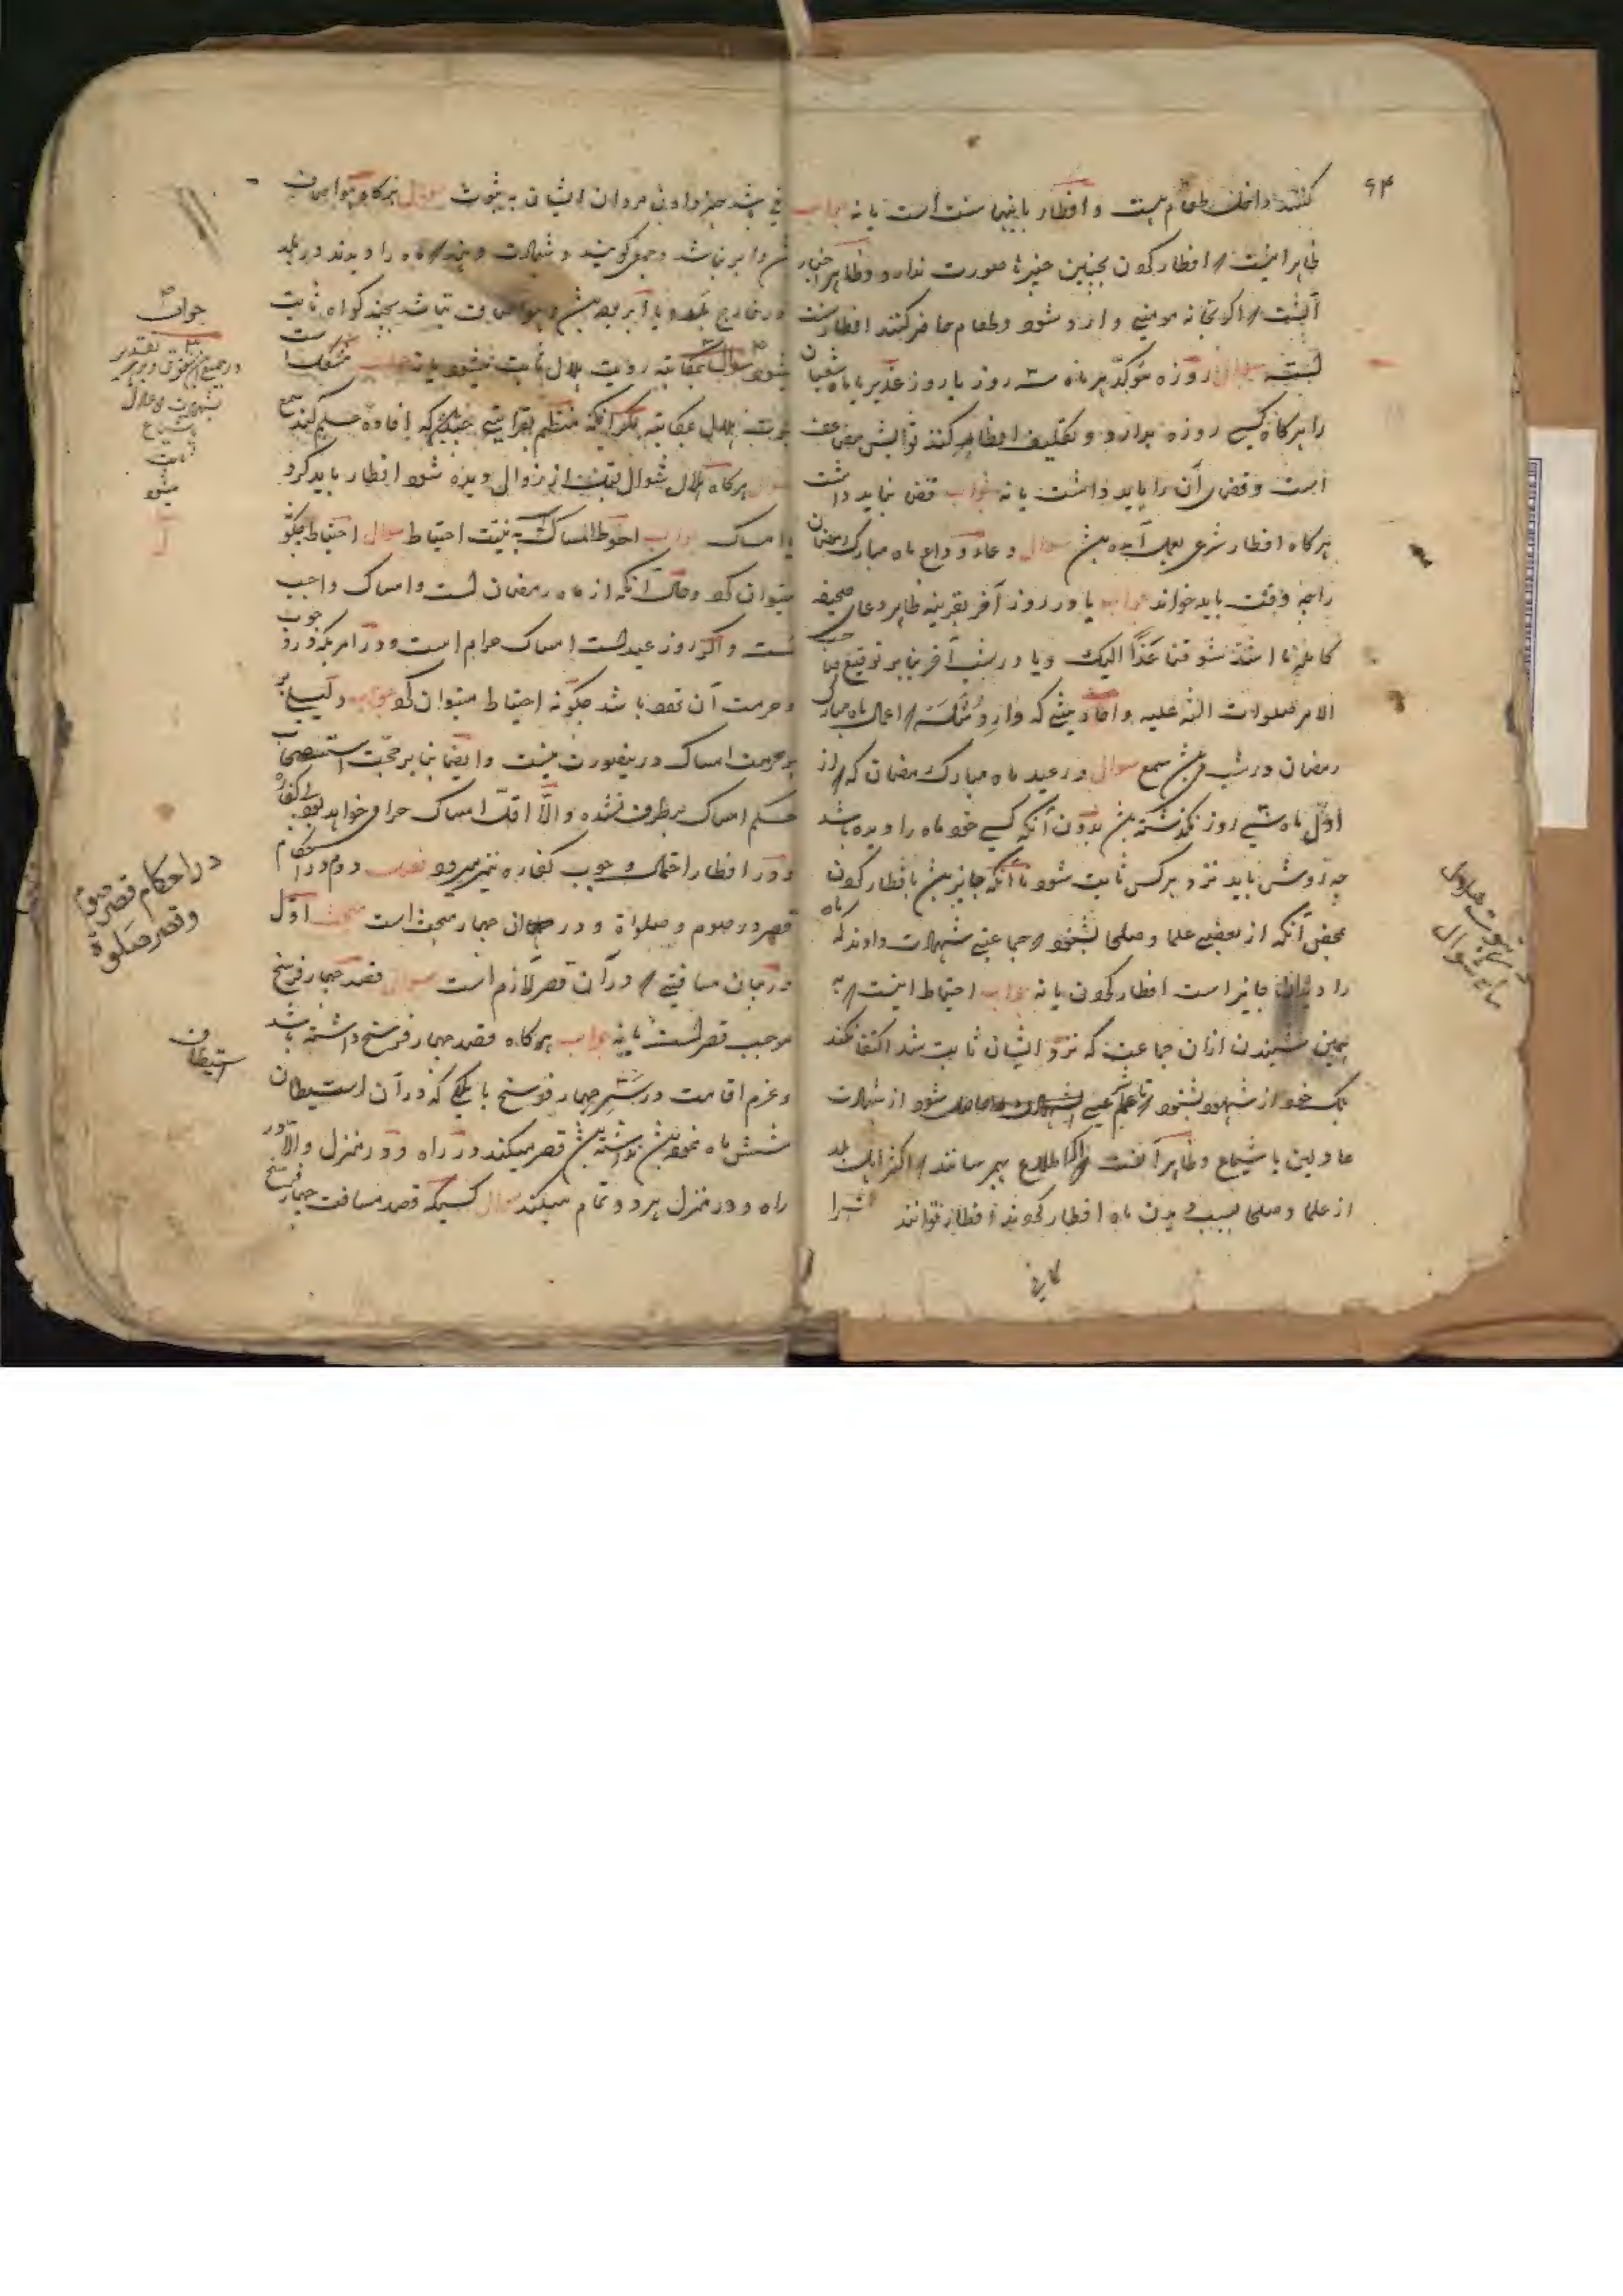 ۶۴
کنند داخل طعام هست و افطار باینها سنت است یا نه جواب
ظاهرا اینست که افطار کردن بچنین چیزها صورت ندارد و ظاهر اخبار
آنست که اگر بخانه مومنی وارد شود و طعام حاضر کنند افطار سنت
است سوال روزه مؤکد هر ماه سه روز یا روز غدیر یا ماه شعبان
را هرگاه کسی روزه بدارد و تکلیف افطار کنند ثوابش مضاعف
است و قضای آن را باید داشت یا نه جواب قضا نباید داشت
هرگاه افطار شرعی بعمل آمده باشد سوال دعاء وداع ماه مبارک رمضان
را چه وقت باید خواند جواب یا در روز آخر بقرینه ظاهر دعای صحیفه
کامله اشتد شوقنا غدا الیک و یا در شب آخر بنابر توقیع صاحب
الامر صلوات الله علیه و احادیثی که وارد شده که اعمال ماه مبارک
رمضان در شب سمع سوال در عید ماه مبارک رمضان که از
اول ماه سی روز نگذشته باشد بدون آنکه کسی خود ماه را دیده باشد
چه روش باید نزد هرکس ثابت شود تا آنکه جایز باشد افطار کردن
بمحض آنکه از بعضی علما و صلحا بشنود که جماعتی شهادت دادند که ماه
را دیدند جایز است افطار کردن یا نه جواب احتیاط اینست که به
همین شنیدن ازان جماعت که نزد ایشان ثابت شد اکتفا نکند
بلکه خود از شهود بشنود تا علم شرعی حاصل شود از شهادت
عادلین یا شیاع و ظاهرا آنست که اگر اطلاع بهم رسانند که اکثر اهل بلد
از علما و صلحا بسبب دیدن ماه افطار کردند افطار توانند کرد
در ثبوت هلال
ماه شوال
فی باشد خبر دادن مردان ایشان به ثبوت سوال هرگاه هوا صاف
و ابر نباشد و جمعی گویند و شهادت دهند که ماه را دیدند در بلد
و در خارج بلد و یا ابر بوده باشد و هوا صاف نباشد بچند گواه ثابت
میشود سوال بمکاتبه رویت هلال ثابت میشود یا نه جواب مشکل است
ثبوت هلال بمکاتبه مگر آنکه منظم بقراینی باشد که افاده علم کند
سوال هرگاه هلال شوال قبل از زوال دیده شود افطار باید کرد
یا امساک جواب احوط امساک به نیت احتیاط سوال احتیاط چگونه
میتوان کرد و حال آنکه از ماه رمضان است و امساک واجب
است و اگر روز عید است امساک حرام است و در امریکه در وجوب
و حرمت آن تعیین باشد چگونه احتیاط میتوان کرد جواب دلیل بر
حرمت امساک در ینصورت نیست و ایضا بنابر حجیت استصحاب
حکم امساک برطرف نشده و الا اقلا امساک حرام خواهد بود بی کفاره
و در افطار احتمال وجوب کفاره نیز میرود فصل دوم در احکام
قصر در صوم و صلواة و در آن چهار مبحث است مبحث اول
در بیان مسافتی که در آن قصر لازم است سوال قصد چهار فرسخ
موجب قصر است یا نه جواب هرگاه قصد چهار فرسخ داشته باشد
و عزم اقامت در سر چهار فرسخ یا ملکی که در آن استیطان
شش ماه نموده باشد نداشته باشد قصر میکند در راه و در منزل والا در
راه و در منزل هر دو تمام میکند سوال کسیکه قصد مسافت چهار فرسخ
جواب
در جمیع شقوق
بشهادت عدلین
یا شیاع
ثابت
میشود
در احکام قصر صوم
و قصر صلوة
استیطان